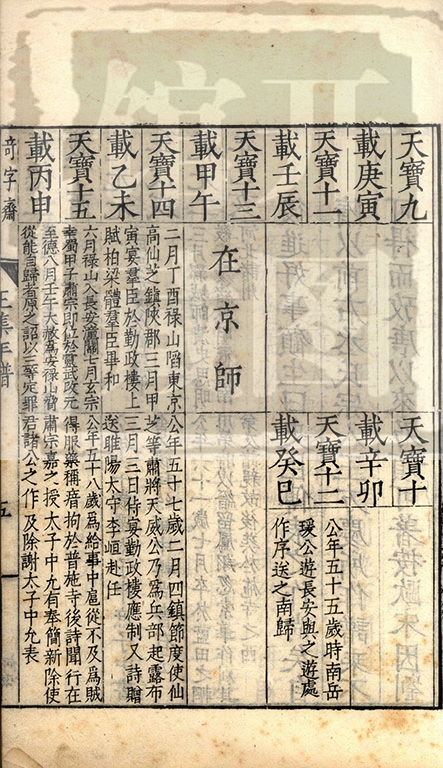 天寶九
載庚寅
天寶十
載辛卯
天寶十一
載壬辰
天寶十二
載癸巳
公年五十五歲時南岳
瑗公遊長安與之遊處
作序送之南歸
天寶十三
載甲午
在京師
天寶十四
載乙未
二月丁酉祿山陷東京
高仙芝鎮陝郡三月甲
寅宴羣臣於勤政樓上
賦柏梁體羣臣畢和
公年五十七歲二月四鎮節度使仙
芝等肅將天威公乃爲兵部起露布
三月三日侍宴勤政樓應制又詩贈
送睢陽太守李峘赴任
天寶十五
載丙申
六月祿山入長安潼關七月玄宗
幸蜀甲子肅宗即位於靈武改元
至德八月壬午大赦爲安祿山脅
從能自歸者原之詔以三等定罪
公年五十八歲爲給事中扈從不及爲賊
得服藥稱瘖拘於普施寺後詩聞行在
肅宗嘉之授太子中允有奉簡新除使
君諸公之作及除謝太子中允表
奇字齋
王集年譜
五